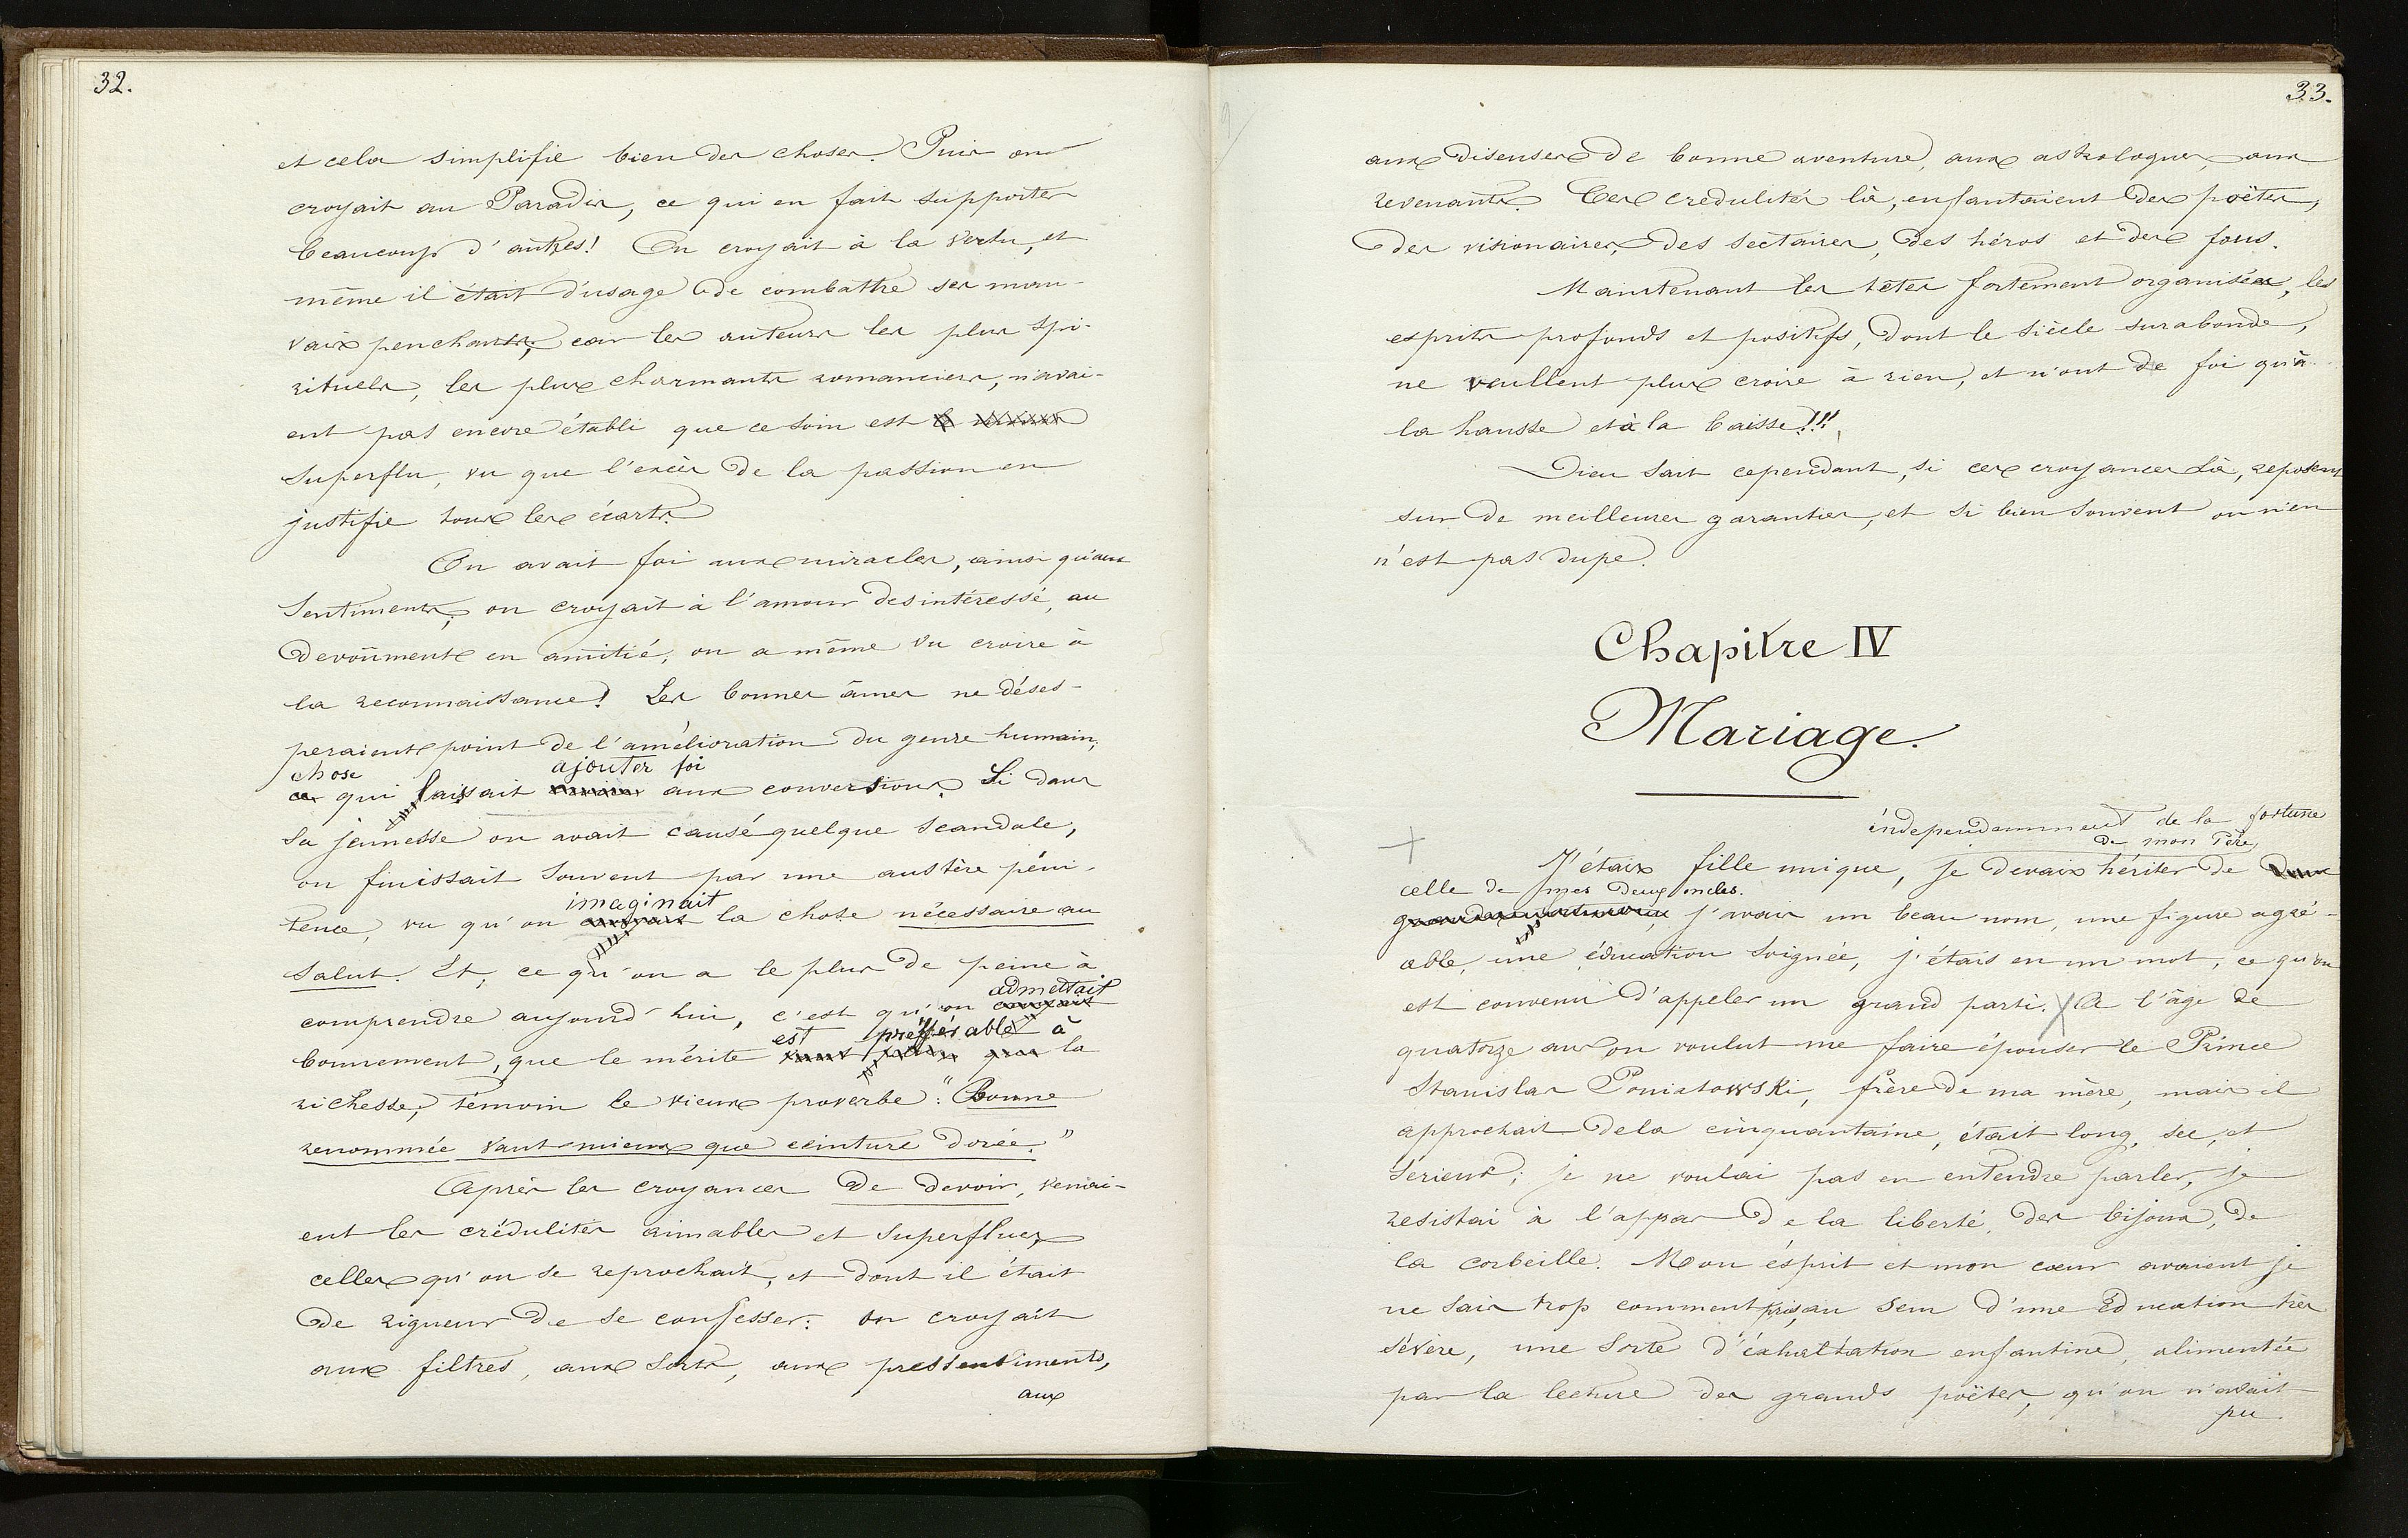 32.
et cela simplifie bien des choses. Puis on
croyait au Paradis, ce qui en fait supporter
beaucoup d'autres! On croyait à la vertu, et
même il était d'usage de combattre ses mau-
vais penchants; car les auteurs les plus spi-
rituels, les plus charmants romanciers, n'avai-
ent pas encore établi que ce soin est
superflu, vu que l'excès de la passion en
justifie tous les écarts.
On avait foi aux miracles, ainsi qu'aux
sentiments; on croyait à l'amour desintéressé, au
devoûment en amitié; on a même vu croire à
la reconnaissance! Les bonnes âmes ne déses-
peraient point de l'amélioration du genre humain;
chose ajouter foi
ce qui faisait croire aux conversions. Si dans
sa jeunesse on avait causé quelque scandale,
on finissait souvent par une austère péni-
imaginait
tence, vu qu'on croyait la chose nécessaire au
salut. Et, ce qu'on a le plus de peine à
admettait
comprendre aujourd'hui, c'est qu'on croyait
est préférable à
bonnement, que le mérite vaut mieux que la
richesse; témoin le vieux proverbe: "Bonne
renommée vaut mieux que ceinture dorée."
Après les croyances de devoir, venai-
ent les crédulités aimables et superflues,
celles qu'on se reprochait, et dont il était
de rigueur de se confesser: on croyait
aux filtres, aux sorts, aux pressentiments,
aux
33.
aux diseuses de bonne aventure, aux astrologues, aux
revenants. Ces credulités là, enfantaient des poëtes,
des visionaires, des sectaires, des héros et des fous.
Maintenant les têtes fortement organisées, les
esprits profonds et positifs, dont le siècle surabonde,
ne veullent plus croire à rien, et n'ont de foi qu'à
la hausse et à la baisse!!!
Dieu sait cependant, si ces croyances là, reposent
sur de meilleures garanties, et si bien souvent on n'en
n'est pas dupe.
Chapitre IV
Mariage.
independamment de la fortune
de mon Père
J'étais fille unique, je devais hériter de deux
celle de mes deux oncles.
grandes fortunes, j'avais un beau nom, une figure agré-
able, une éducation soignée, j'étais en un mot, ce qu'on
est convenu d'appeler un grand parti. A l'âge de
quatorze ans on voulut me faire épouser le Prince
Stanislas Poniatowski, frère de ma mère, mais il
approchait de la cinquantaine, était long, sec, et
serieux; je ne voulai pas en entendre parler, je
resistai à l'appas de la liberté, des bijoux, de
la corbeille. Mon ésprit et mon cœur avaient je
ne sais trop comment pris, au sein d'une Education très
sévère, une sorte d'éxhaltation enfantine, alimentée
par la lecture des grands poëtes, qu'on n'avait
pu